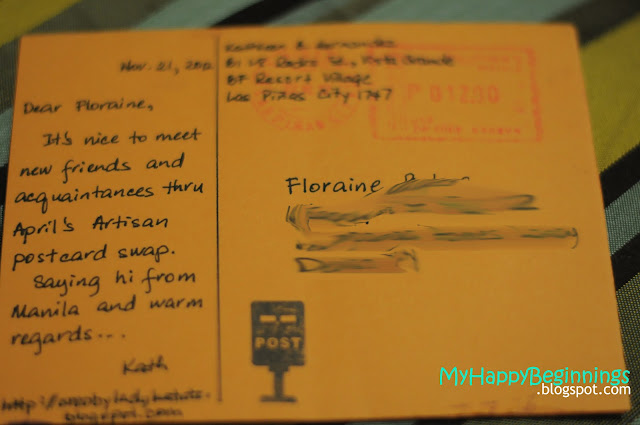 Nov. 21, 2012
Dear Floraine,
It's nice to meet
new friends and
acquaintances thru
April's Artisan
postcard swap.
Saying hi from
Manila and warm
regards...
Kath
http://
blogspot.com
Kathleen B. Hernandez
St.,
BF Resort Village
Las Piñas City 1747
P 012.90
Floraine
POST
MyHappyBeginnings
.blogspot.com